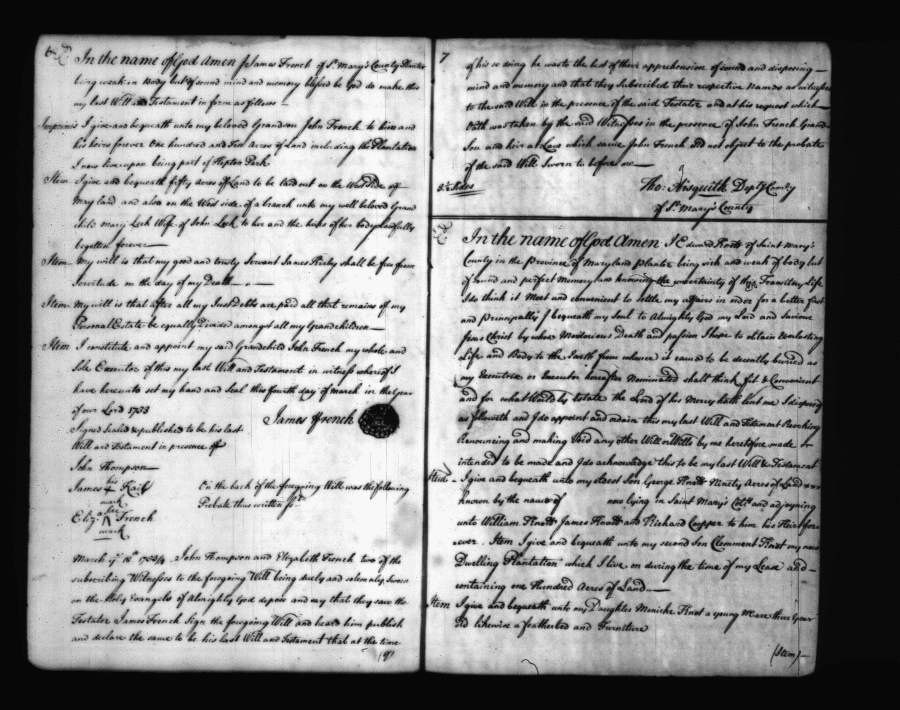 6
In the name of God Amen I James French of St. Mary's County Planter
being weak in Body but of sound mind and memory blessed be God do make this
my last Will and Testament in form as follows
Imprimis I give and bequeath unto my beloved Grandson John French to him and
his heirs forever One hundred and Acres of Land including the Plantation
I now live upon being part of Hopton Park
Item I give and bequeath fifty acres of Land to be laid out on the West side of
Mary land and also on the West side of a branch unto my well beloved Grand
child mary Lock Wife of John Lock to her and the heirs of her body lawfully
begotten forever
Item My will is that my good and trusty Servant James shall be free from
Servitude on the day of my Death
Item My will is that after all my Just Debts are paid all that remains of my
Personal Estate be equally Divided amongst all my Grandchildren
Item I constitute and appoint my said Grandchild John French my whole and
Sole Executor of this my last Will and Testament in witness whereof I
have hereunto set my hand and Seal this fourth day of March in the Year
of our Lord 1733
James French
Signed Sealed & published to be his last
Will and Testament in presence of
John Thompson
his
James Kail
mark
her
Eliz. French
mark
On the back of the foregoing Will was the following
Probate thus written
March ye 18th 1733/4 John Thompson and Elizabeth French two of the
subscribing Witnesses to the foregoing Will being duely and solemnly sworn
on the Holy Evangels of Almighty God depose and say that they saw the
Testator James French Sign the foregoing Will and heard him publish
and declare the same to be his last Will and Testament that at the time
7
of his so doing he was to the best of their apprehension of sound and disposing
mind and memory and that they subscribed their respective Names as witnesses
to the said Will in the presence of the said Testator and at his request which
Oath was taken by the said Witnesses in the presence of John French Grand
Son and heir a Law which same John French did not object to the probate
of the said Will Sworn to before me
Tho: Aisquith Depty Comry
of St. Mary's County
In the name of God Amen I Edward Knott of Saint Mary's
County in the Province of Maryland Planter being sick and weak of body but
of sound and perfect Memory and knowing the uncertainty of this Transitory Life
I do think it Meet and convenient to settle my affairs in order for a better
and Principally I bequeath my Soul to Almighty God my Lord and Saviour
Jesus Christ by whose Meritorious Death and passion I hope to obtain Everlasting
Life and Body to the Earth from whence it came to be decently buried as
my Executrix or Executor hereafter Nominated shall think fit & Convenient
and for what Worldly Estate the Lord of his Mercy hath lent me I dispose
as followeth and I do appoint and ordain this my last Will and Testament Revoking
Renouncing and making Void any other Will or Wills by me heretofore made or
intended to be made and I do acknowledge this to be my last Will & Testament
Item I give and bequeath unto my eldest Son George Knott Ninety Acres of Land
known by the name of now lying in Saint Mary's County and adjoyning
unto William Knott James Knott and Richard Cooper to him his Heirs for
ever. Item I give and bequeath unto my second Son Clemment Knot my now
Dwelling Plantation which I live on during the time of my Lease and
containing one Hundred Acres of Land
Item I give and bequeath unto my Daughter Monicke Knot a young Mare three Year
old likewise a featherbed and Furniture
(Item)